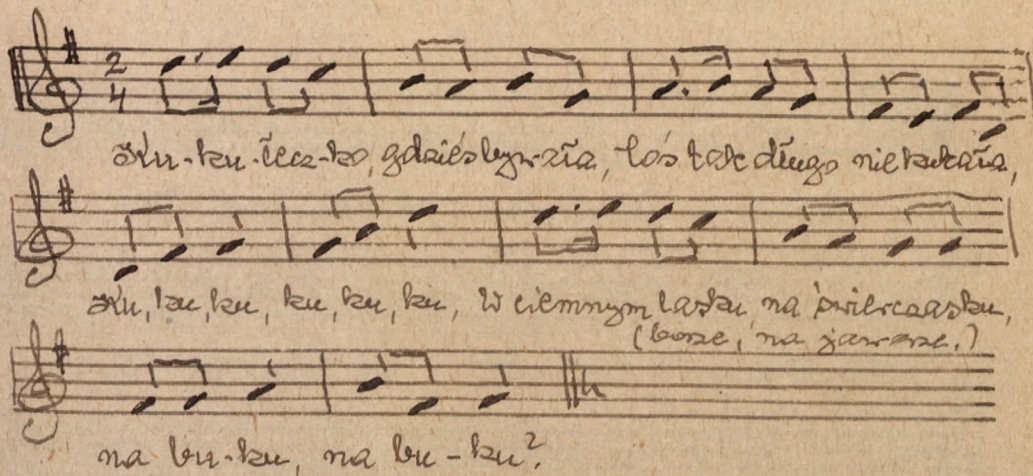 2
4
Ku-ku-łecz-ko, gdzieś bywała, coś tak długo nie kukała,
Ku, ku, ku, ku, ku, ku, W ciemnym lasku, na świerczasku,
(borze, na jaworze.)
na bu-ku, na bu-ku?